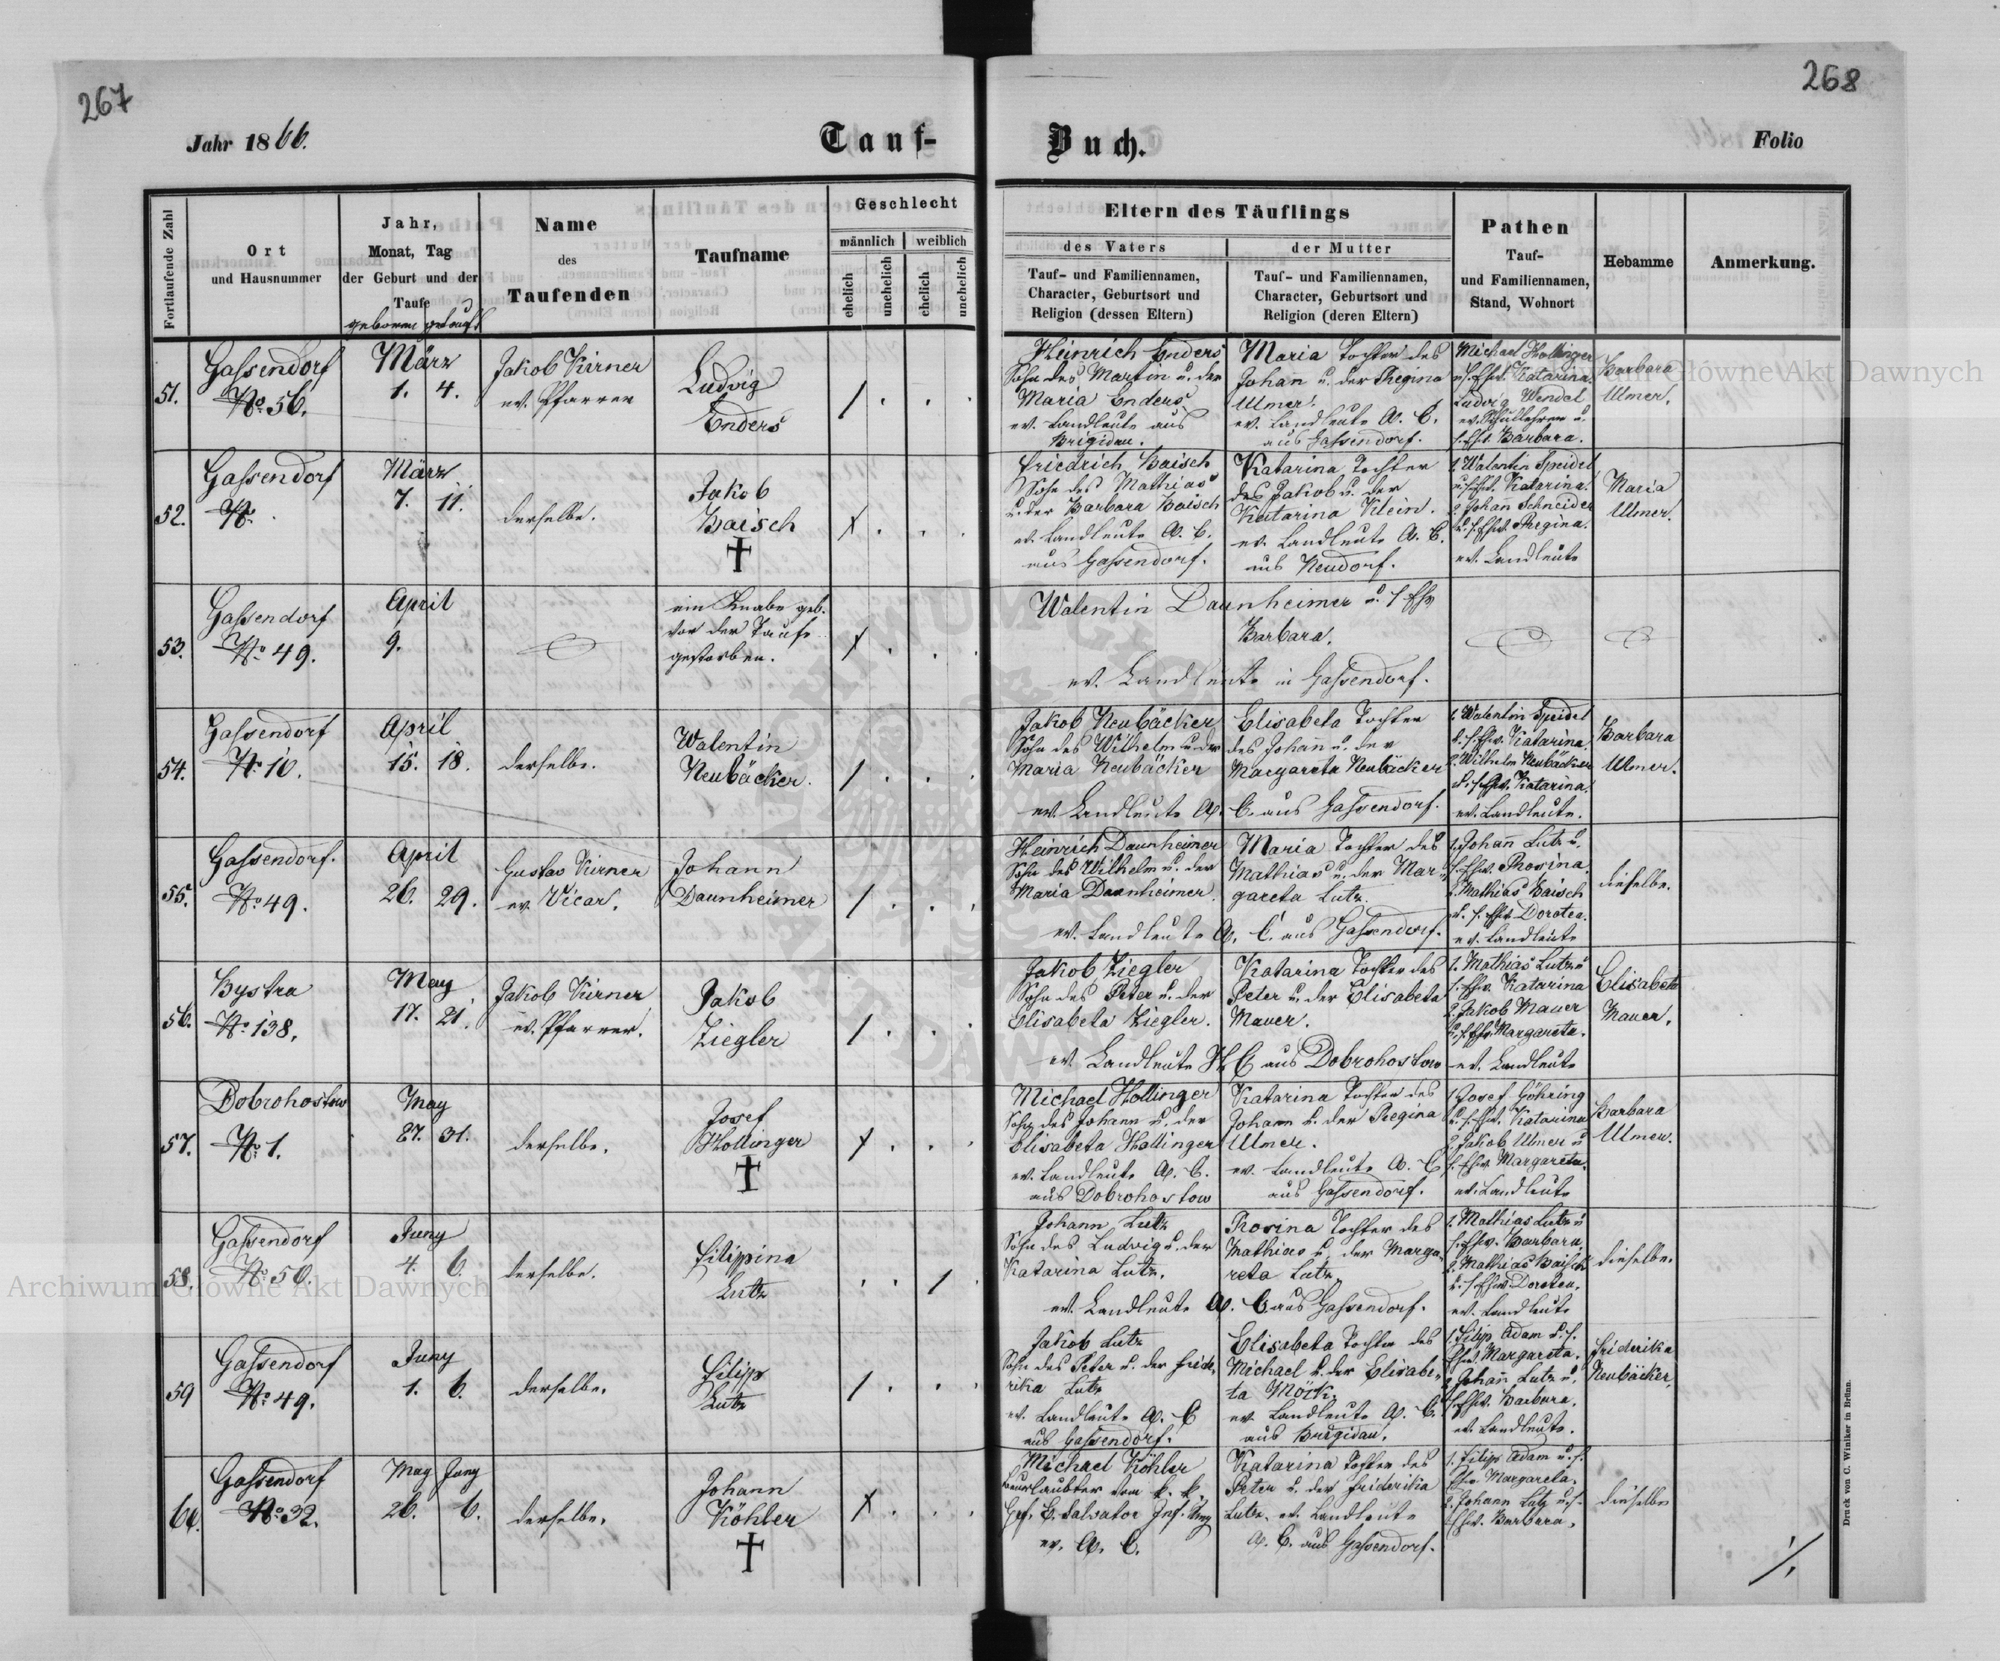 267
268
Jahr 1866.
Tauf-
Buch.
Folio
Fortlaufende Zahl
Ort
und Hausnummer
Jahr,
Monat, Tag
der Geburt und der
Taufe
geboren getauft
Name
des
Taufenden
Taufname
Geschlecht
männlich
weiblich
ehelich
unehelich
ehelich
unehelich
Eltern des Täuflings
des Vaters
der Mutter
Tauf- und Familiennamen,
Character, Geburtsort und
Religion (dessen Eltern)
Tauf- und Familiennamen,
Character, Geburtsort und
Religion (deren Eltern)
Pathen
Tauf-
und Familiennamen,
Stand, Wohnort
Hebamme
Anmerkung.
51.
Gassendorf
No. 56.
März
1. 4.
Jakob Kirner
ev. Pfarrer
Ludvig
Enders
Heinrich Enders
Sohn des Martin u. der
Maria Enders
ev. Landleute aus
Brigidau.
Maria Tochter des
Johan u. der Regina
Ulmer.
ev. Landleute A. C.
aus Gassendorf.
Michael Hollinger
u. s. Ehw. Katarina.
Ludvig Wendel
ev. Schullehrer u.
s. Ehw. Barbara.
Barbara
Ulmer.
52.
Gassendorf
No.
März
7. 11.
derselbe.
Jakob
Baisch
Friedrich Baisch
Sohn des Mathias
u. der Barbara Baisch
ev. Landleute A. C.
aus Gassendorf.
Katarina Tochter
des Jakob u. der
Katarina Klein.
ev. Landleute A. C.
aus Neudorf.
1. Walentin Speidel
u. s. Ehw. Katarina.
2. Johann Schneider
u. s. Ehw. Regina.
ev. Landleute
Maria
Ulmer.
53.
Gassendorf
No. 49.
April
9.
ein Knabe geb.
vor der Taufe
gestorben.
Walentin Daunheimer u. s. Ehw
Barbara.
ev. Landleute in Gassendorf.
54.
Gassendorf
No. 10.
April
15. 18.
derselbe.
Walentin
Neubäcker.
Jakob Neubäcker
Sohn des Wilhelm u. der
Maria Neubäcker
Elisabeta Tochter
des Johann u. der
Margareta Neubäcker
ev. Landleute A. C. aus Gassendorf.
1. Walentin Speidel
u. s. Ehw. Katarina.
2. Wilhelm Neubäcker
u. s. Ehw. Katarina.
ev. Landleute.
Barbara
Ulmer.
55.
Gassendorf.
No. 49.
April
26. 29.
Gustav Kirner
ev. Vicar.
Johann
Daunheimer
Heinrich Daunheimer
Sohn des Wilhelm u. der
Maria Daunheimer.
Maria Tochter des
Mathias u. der Mar-
gareta Lutz.
ev. Landleute A. C. aus Gassendorf.
1. Johann Lutz u.
s. Ehw. Rosina.
2. Mathias Baisch
u. s. Ehw. Dorotea.
ev. Landleute
dieselbe.
56.
Bystra
No. 138.
May
17. 21.
Jakob Kirner
ev. Pfarrer.
Jakob
Ziegler
Jakob Ziegler
Sohn des Peter u. der
Elisabeta Ziegler.
Katarina Tochter des
Peter u. der Elisabeta
Mauer.
ev. Landleute H. C aus Dobrohostow
1. Mathias Lutz u
s. Ehw. Katarina
2. Jakob Mauer
u. s. Ehw. Margareta.
ev. Landleute
Elisabeta
Mauer.
57.
Dobrohostow
No. 1.
May
27. 31.
derselbe.
Josef
Hollinger
Michael Hollinger
Sohn des Johann u. der
Elisabeta Hollinger
ev. Landleute A. C.
aus Dobrohostow
Katarina Tochter des
Johann u. der Regina
Ulmer.
ev. Landleute A. C
aus Gassendorf.
1. Josef Göhring
u. s. Ehw. Katarina
2. Jakob Ulmer u
s. Ehw. Margareta.
ev. Landleute
Barbara
Ulmer.
58.
Gassendorf
No. 50.
Juny
4. 6.
derselbe.
Filippina
Lutz
Johann Lutz
Sohn des Ludvig u. der
Katarina Lutz.
Rosina Tochter des
Mathias u. der Marga-
reta Lutz.
ev. Landleute A. C aus Gassendorf.
1. Mathias Lutz u
s. Ehw. Barbara
2. Mathias Baisch
u. s. Ehw Dorotea.
ev. Landleute
dieselbe.
59
Gassendorf
No. 49.
Juny
1. 6.
derselbe.
Filipp
Lutz
Jakob Lutz
Sohn des Peter u. der Fride-
rika Lutz
ev. Landleute A. C
aus Gassendorf.
Elisabeta Tochter des
Michael u. der Elisabe-
ta Möck.
ev. Landleute A. C.
aus Brigidau.
1. Filip Adam u. s.
Ehw. Margareta.
2. Johann Lutz u.
s. Ehw. Barbara.
ev. Landleute.
Friderika
Neubäcker.
60.
Gassendorf
No. 32.
May Juny
26. 6.
derselbe.
Johann
Köhler
Michael Köhler
beurlaubter vom k. k.
E. Salvator Inf. Reg
ev. A. C.
Katarina Tochter des
Peter u. der Friderika
Lutz. ev. Landleute
A. C. aus Gassendorf.
1. Filip Adam u. s.
Ehw. Margareta.
2. Johann Lutz u. s.
Ehw. Barbara.
dieselbe
Druck von C. Winiker in Brünn.
Archiwum Główne Akt Dawnych
Archiwum Główne Akt Dawnych